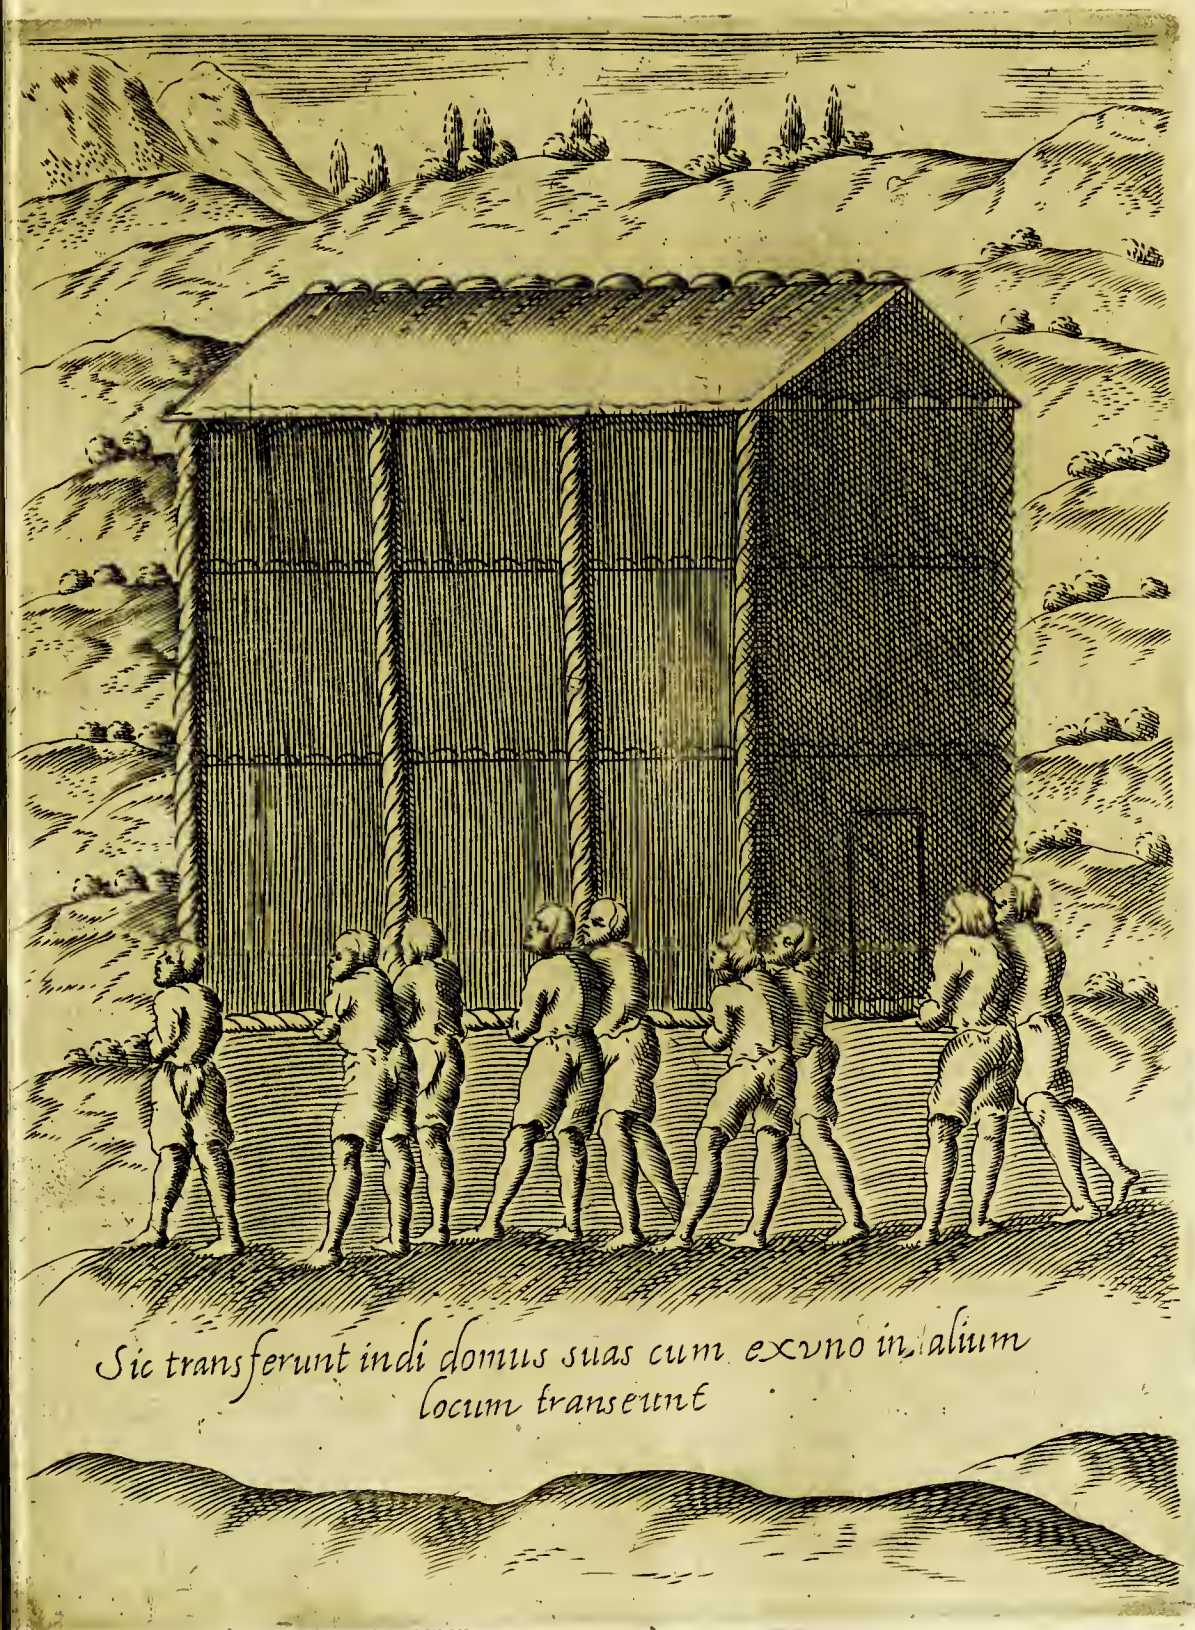 Sic transferunt indi domus suas cum exvno in alium
locum transeunt